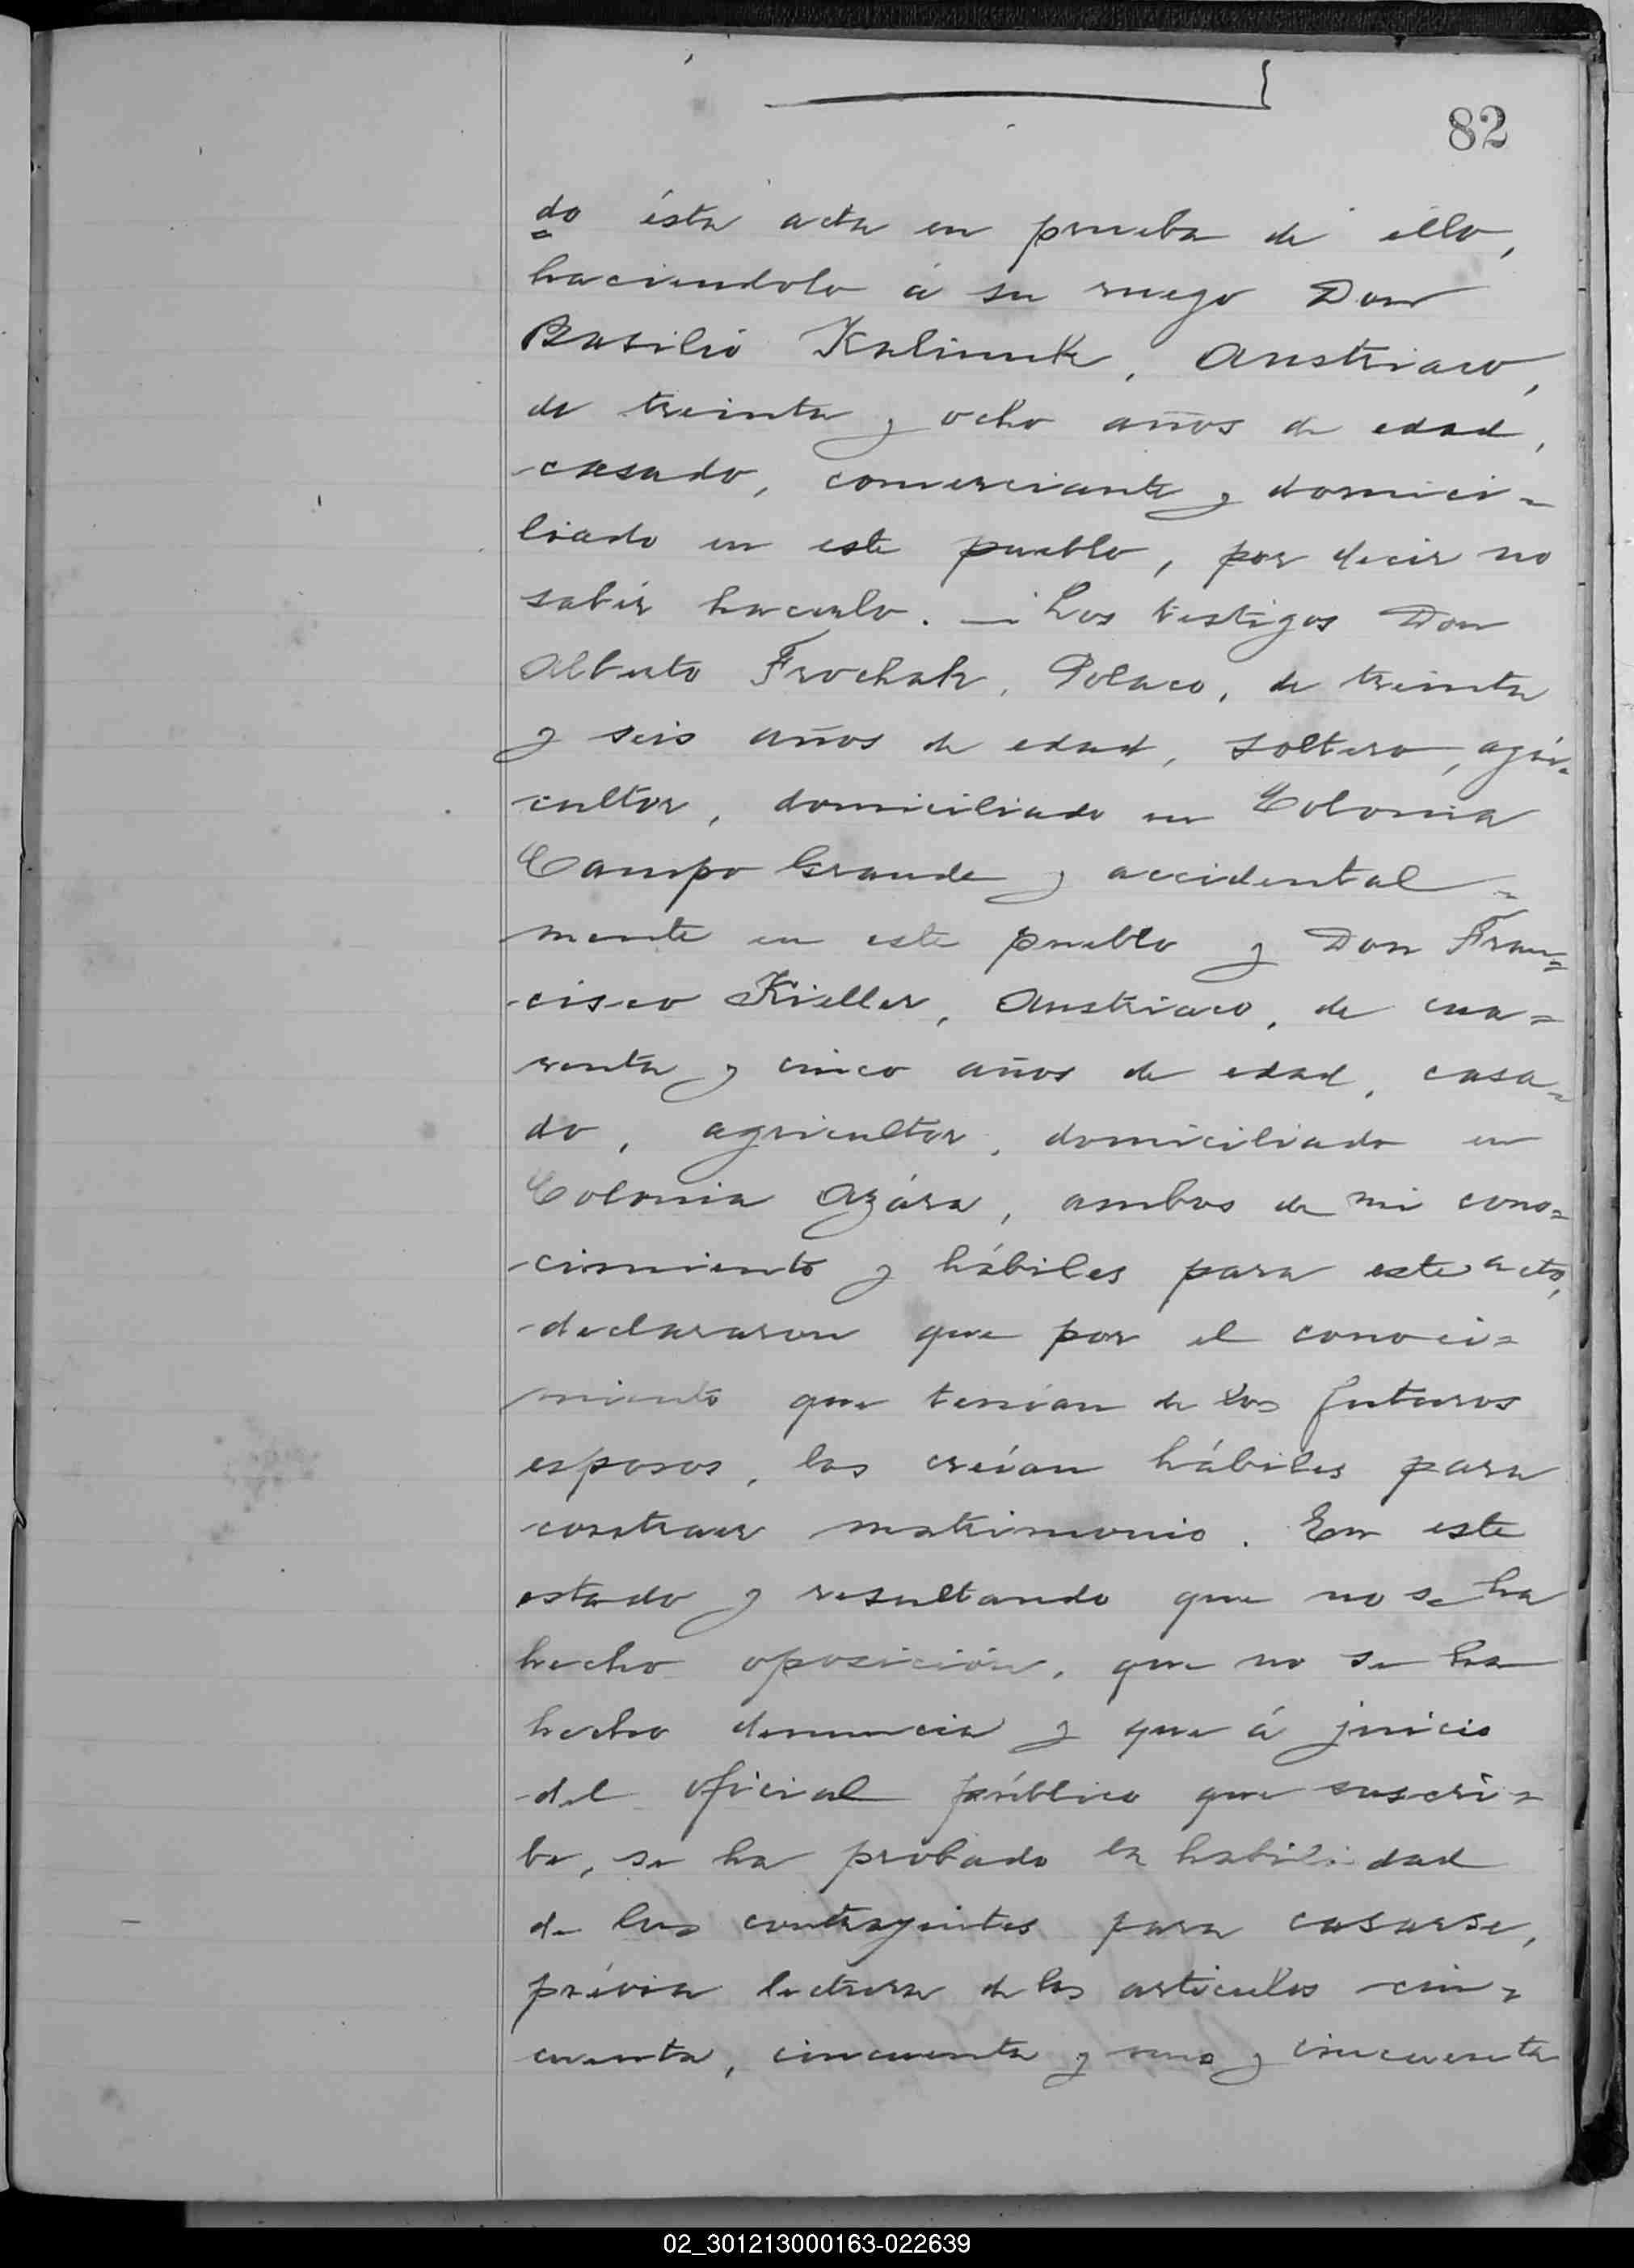 82
do ésta acta en prueba de ello,
haciendolo á su ruego Don
Basilio Kaliniuk, Austriaco,
de treinta y ocho años de edad,
casado, comerciante y domici=
liado en este pueblo, por decir no
saber hacerlo. — Los testigos Don
Alberto Frochak, Polaco, de treinta
y seis años de edad, soltero, agri=
cultor, domiciliado en Colonia
Campo Grande y accidental=
mente en este pueblo y Don Fran=
cisco Kieller, Austriaco, de cua=
renta y cinco años de edad, casa=
do, agricultor, domiciliado en
Colonia Azára, ambos de mi cono=
cimiento y hábiles para este acto,
declararon que por el conoci=
miento que tenían de los futuros
esposos, los creían hábiles para
contraer matrimonio. En este
estado y resultando que no se ha
hecho oposición, que no se ha
hecho denuncia y que á juicio
del oficial público que suscri=
be, se ha probado la habilidad
de los contrayentes para casarse,
prévia lectura de los articulos cin=
cuenta, cincuenta y uno y cincuenta
02_301213000163-022639